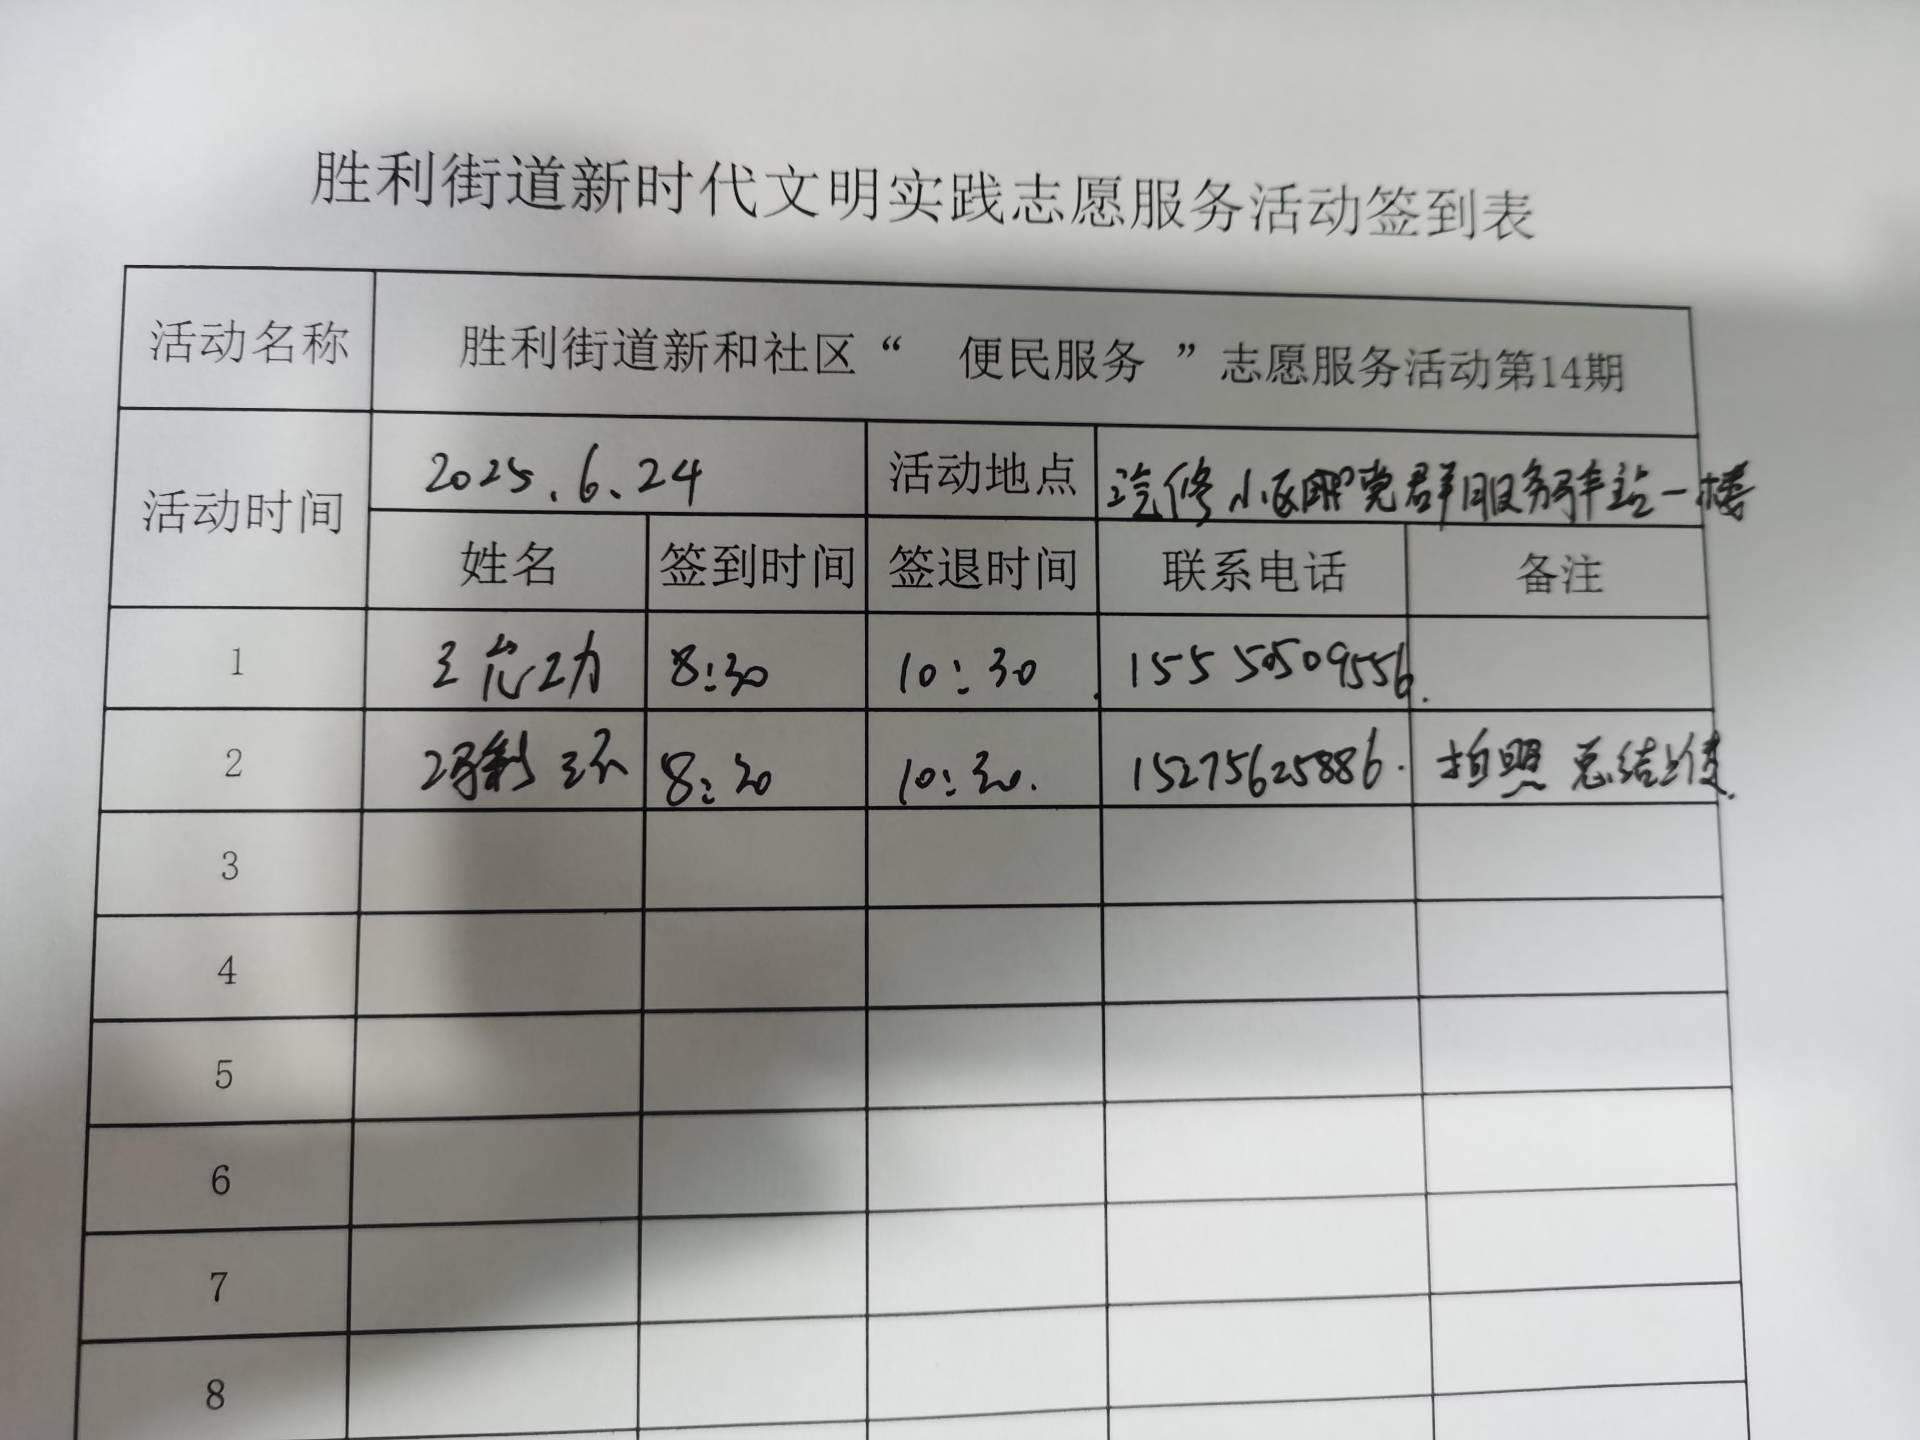 胜利街道新时代文明实践志愿服务活动签到表
活动名称 胜利街道新和社区“ 便民服务 ”志愿服务活动第14期
活动时间 2025.6.24 活动地点 汽修小区 党群服务驿站一楼
姓名 签到时间 签退时间 联系电话 备注
1 王 功 8:30 10:30 15550509556
2 8:30 10:30. 15275625886. 拍照 总结上传
3
4
5
6
7
8